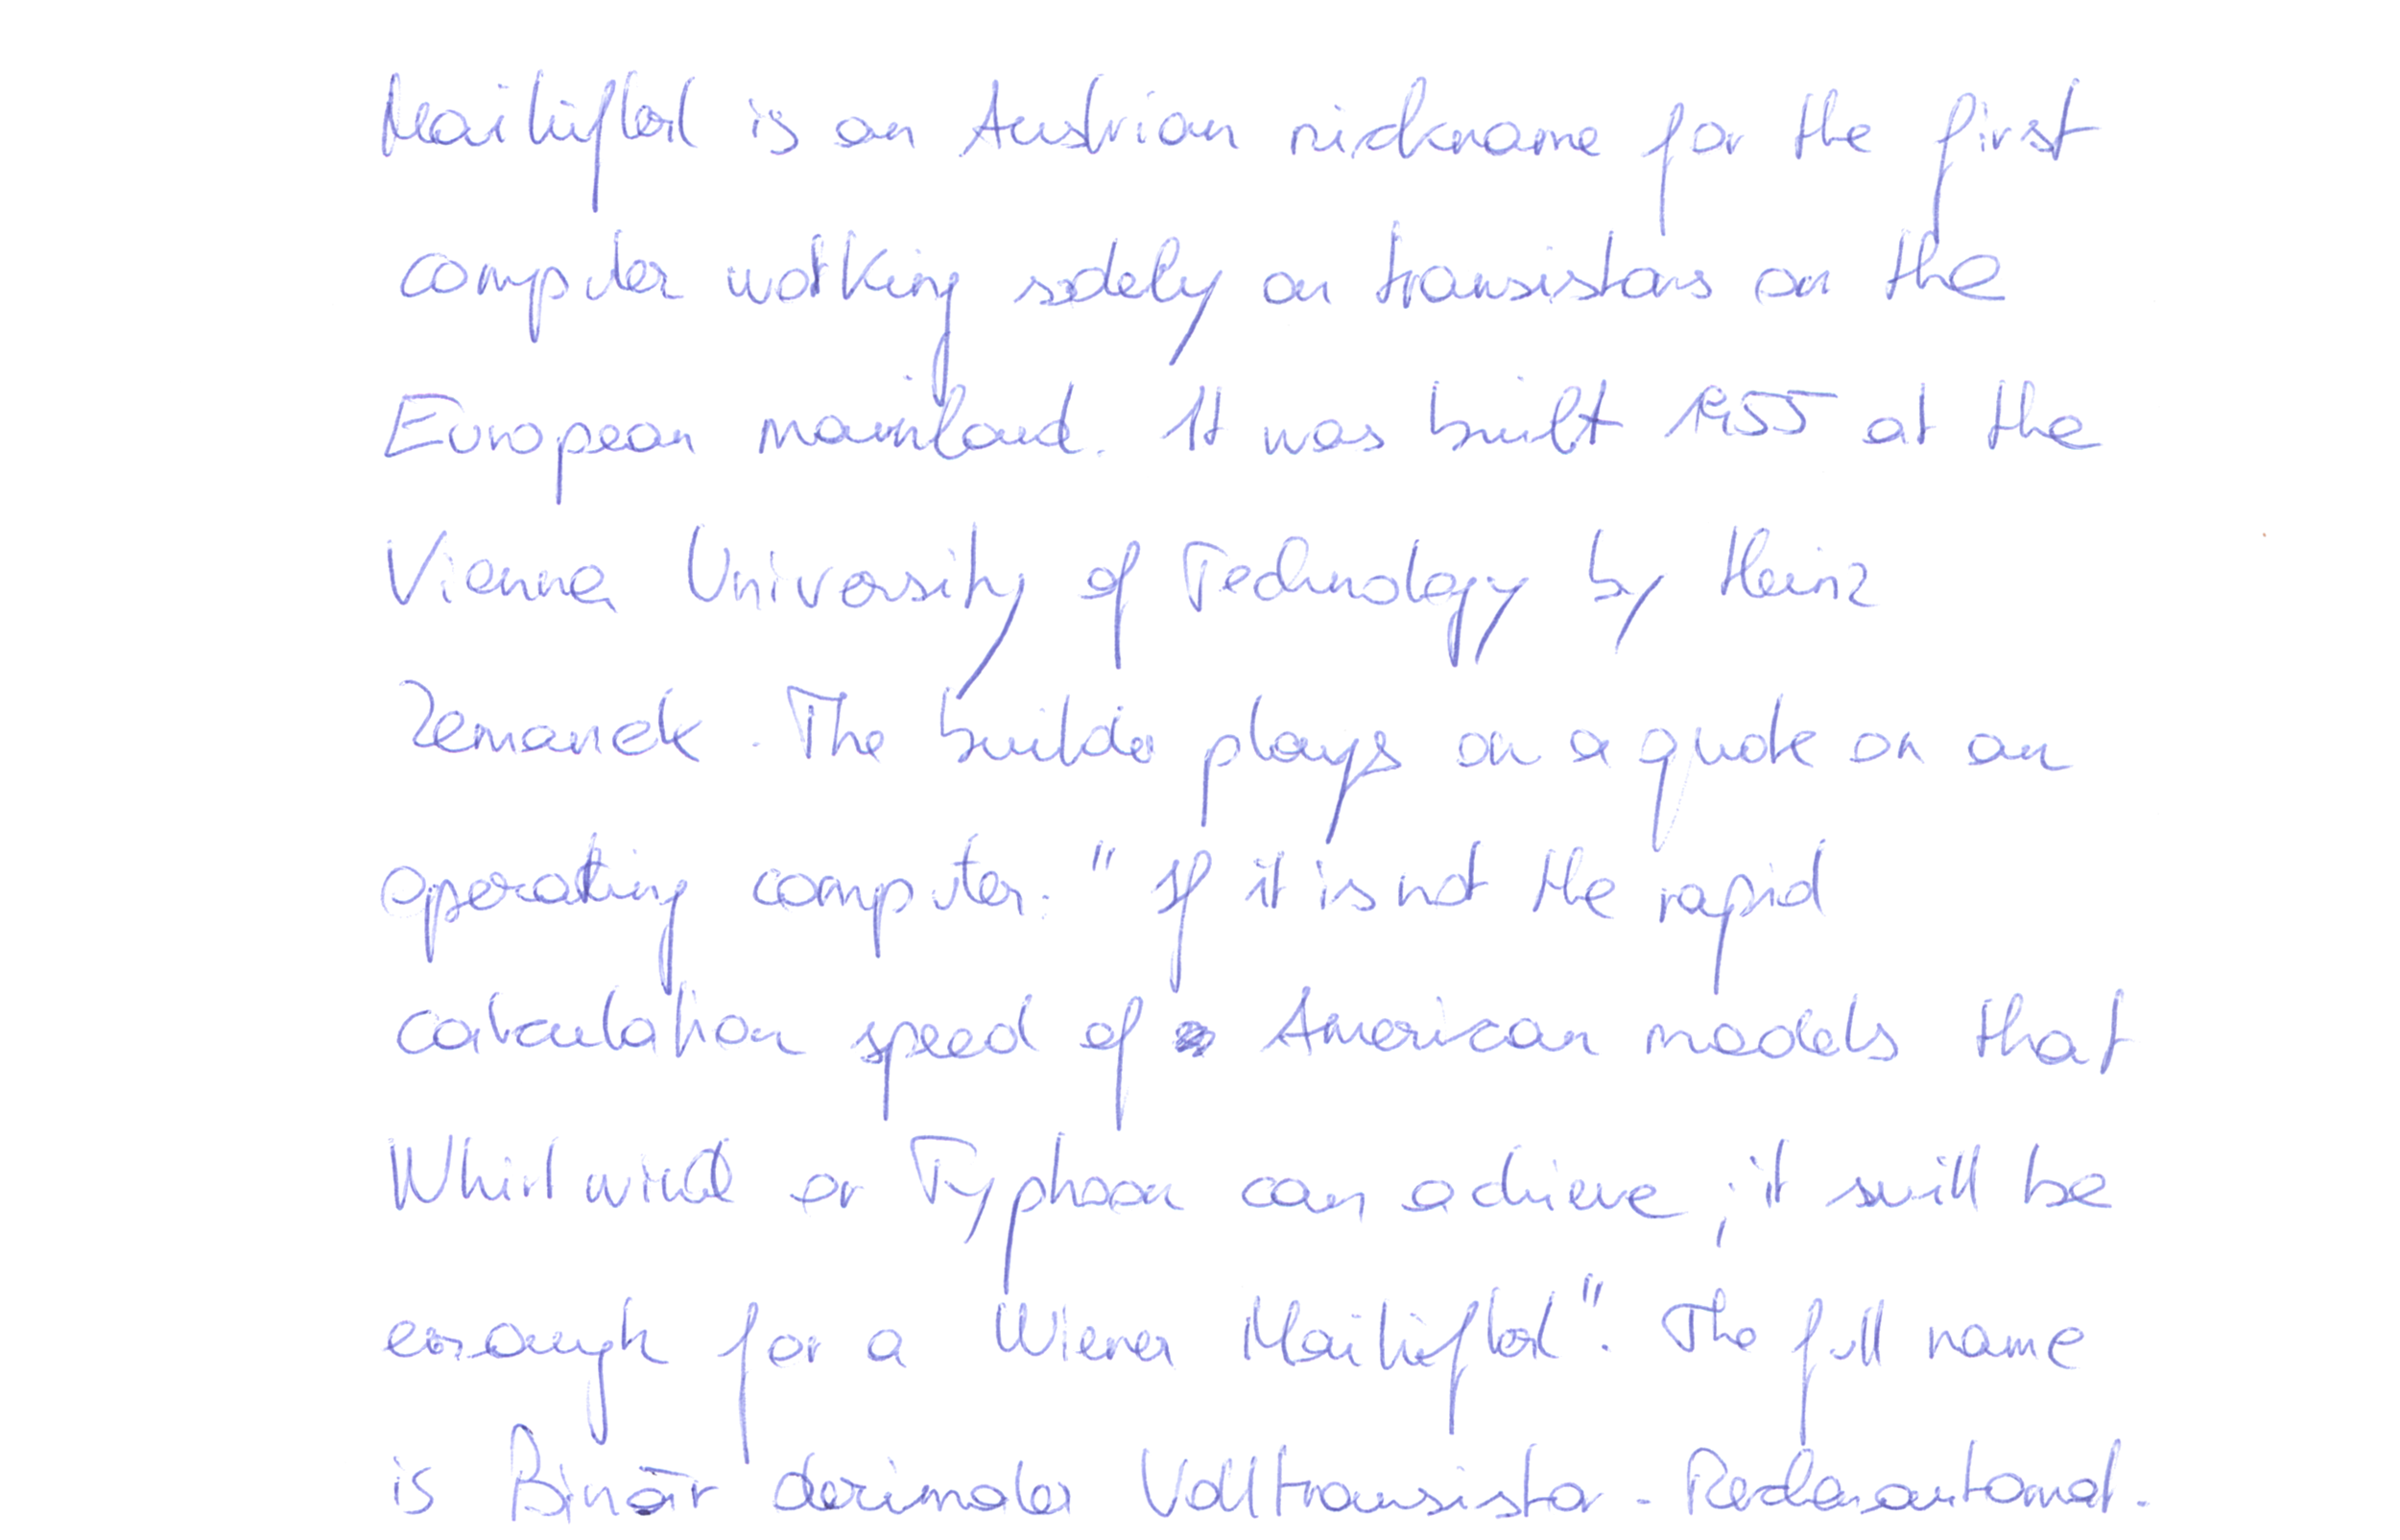 Mailüfterl is an Austrian nickname for the first
computer working solely on transistors on the
European mainland. It was built 1955 at the
Vienna University of Technology by Heinz
Zemanek. The builder plays on a quote on an
operating computer: "If it is not the rapid
calculation speed of American models that
Whirlwind or Typhoon can achieve, it will be
enough for a Wiener Mailüfterl". The full name
is Binär dezimaler Volltransistor-Rechenautomat.